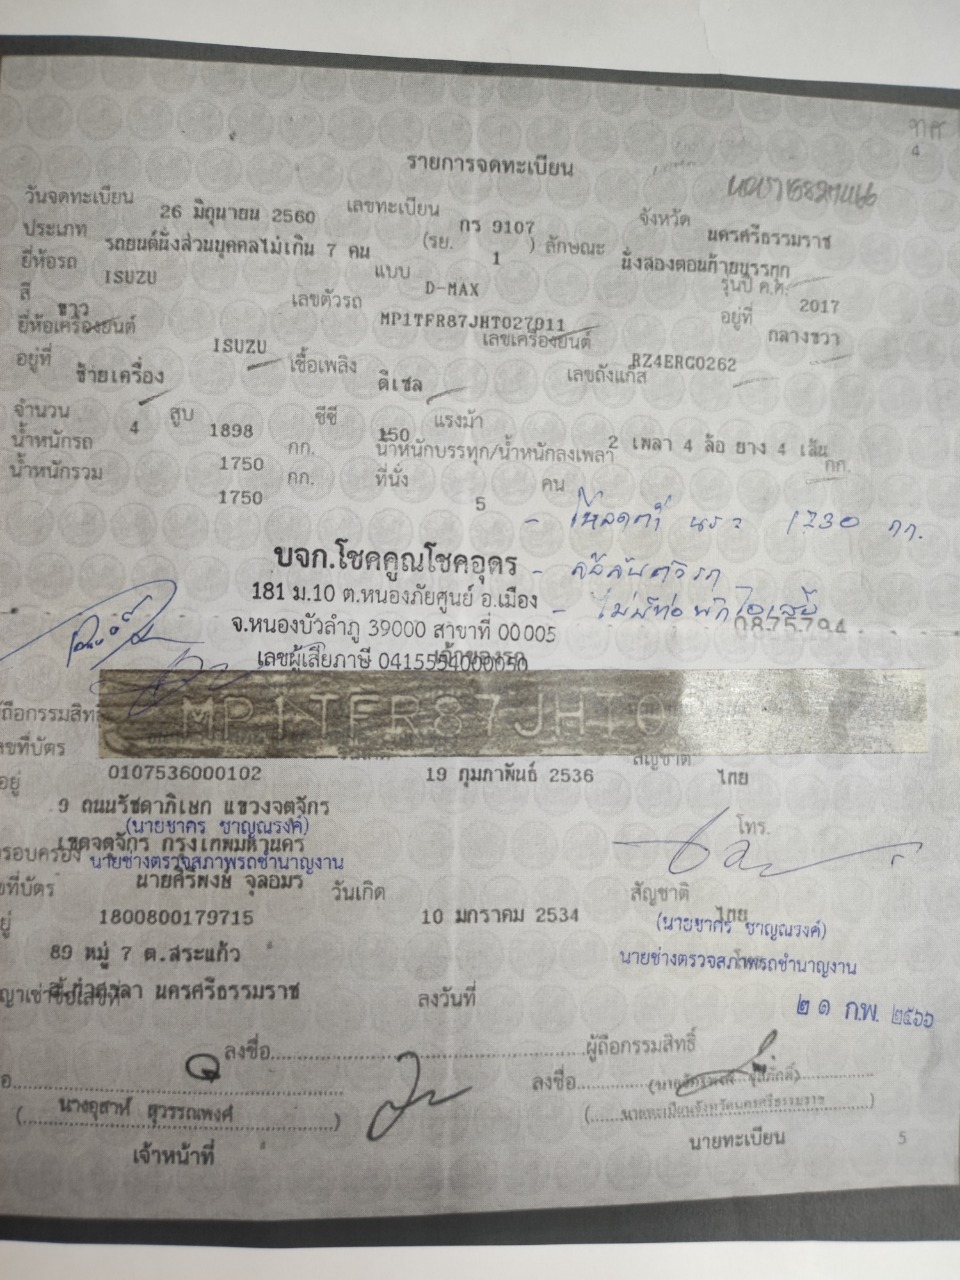 ทศ
4
รายการจดทะเบียน
วันจดทะเบียน 26 มิถุนายน 2560 เลขทะเบียน กร 9107 จังหวัด นครศรีธรรมราช
ประเภท รถยนต์นั่งส่วนบุคคลไม่เกิน 7 คน (รย. 1 ) ลักษณะ นั่งสองตอนท้ายบรรทุก
ยี่ห้อรถ ISUZU แบบ D-MAX รุ่นปี ค.ศ. 2017
สี ขาว เลขตัวรถ MP1TFR87JHT027011 อยู่ที่ กลางขวา
ยี่ห้อเครื่องยนต์ ISUZU เลขเครื่องยนต์ RZ4ERG0262
อยู่ที่ ซ้ายเครื่อง เชื้อเพลิง ดีเซล เลขถังแก๊ส
จำนวน 4 สูบ 1898 ซีซี 150 แรงม้า 2 เพลา 4 ล้อ ยาง 4 เส้น
น้ำหนักรถ 1750 กก. น้ำหนักบรรทุก/น้ำหนักลงเพลา กก.
น้ำหนักรวม 1750 กก. ที่นั่ง 5 คน
- โหลดต่ำ นร = 1730 กก.
บจก.โชคคูณโชคอุดร
181 ม.10 ต.หนองภัยศูนย์ อ.เมือง - ไม่มีท่อพักไอเสีย
จ.หนองบัวลำภู 39000 สาขาที่ 00005 0875794
เลขผู้เสียภาษี 0415554000050 เจ้าของรถ
MP1TFR87JHT0
ผู้ถือกรรมสิทธิ์
เลขที่บัตร 0107536000102 19 กุมภาพันธ์ 2536 สัญชาติ ไทย
อยู่ 9 ถนนรัชดาภิเษก แขวงจตุจักร โทร.
(นายชาคร ชาญณรงค์)
เขตจตุจักร กรุงเทพมหานคร
นายช่างตรวจสภาพรถชำนาญงาน
ครอบครอง นายศิริพงษ์ จุลอมร วันเกิด สัญชาติ
ที่บัตร 1800800179715 10 มกราคม 2534 ไทย
(นายชาคร ชาญณรงค์)
อยู่ 89 หมู่ 7 ต.สระแก้ว
นายช่างตรวจสภาพรถชำนาญงาน
อ.ท่าศาลา นครศรีธรรมราช ลงวันที่
๒๑ ก.พ. ๒๕๖๖
ลงชื่อ ผู้ถือกรรมสิทธิ์
ลงชื่อ
(นางอุสาห์ สุวรรณพงศ์)
นายทะเบียนจังหวัดนครศรีธรรมราช
เจ้าหน้าที่ นายทะเบียน
5